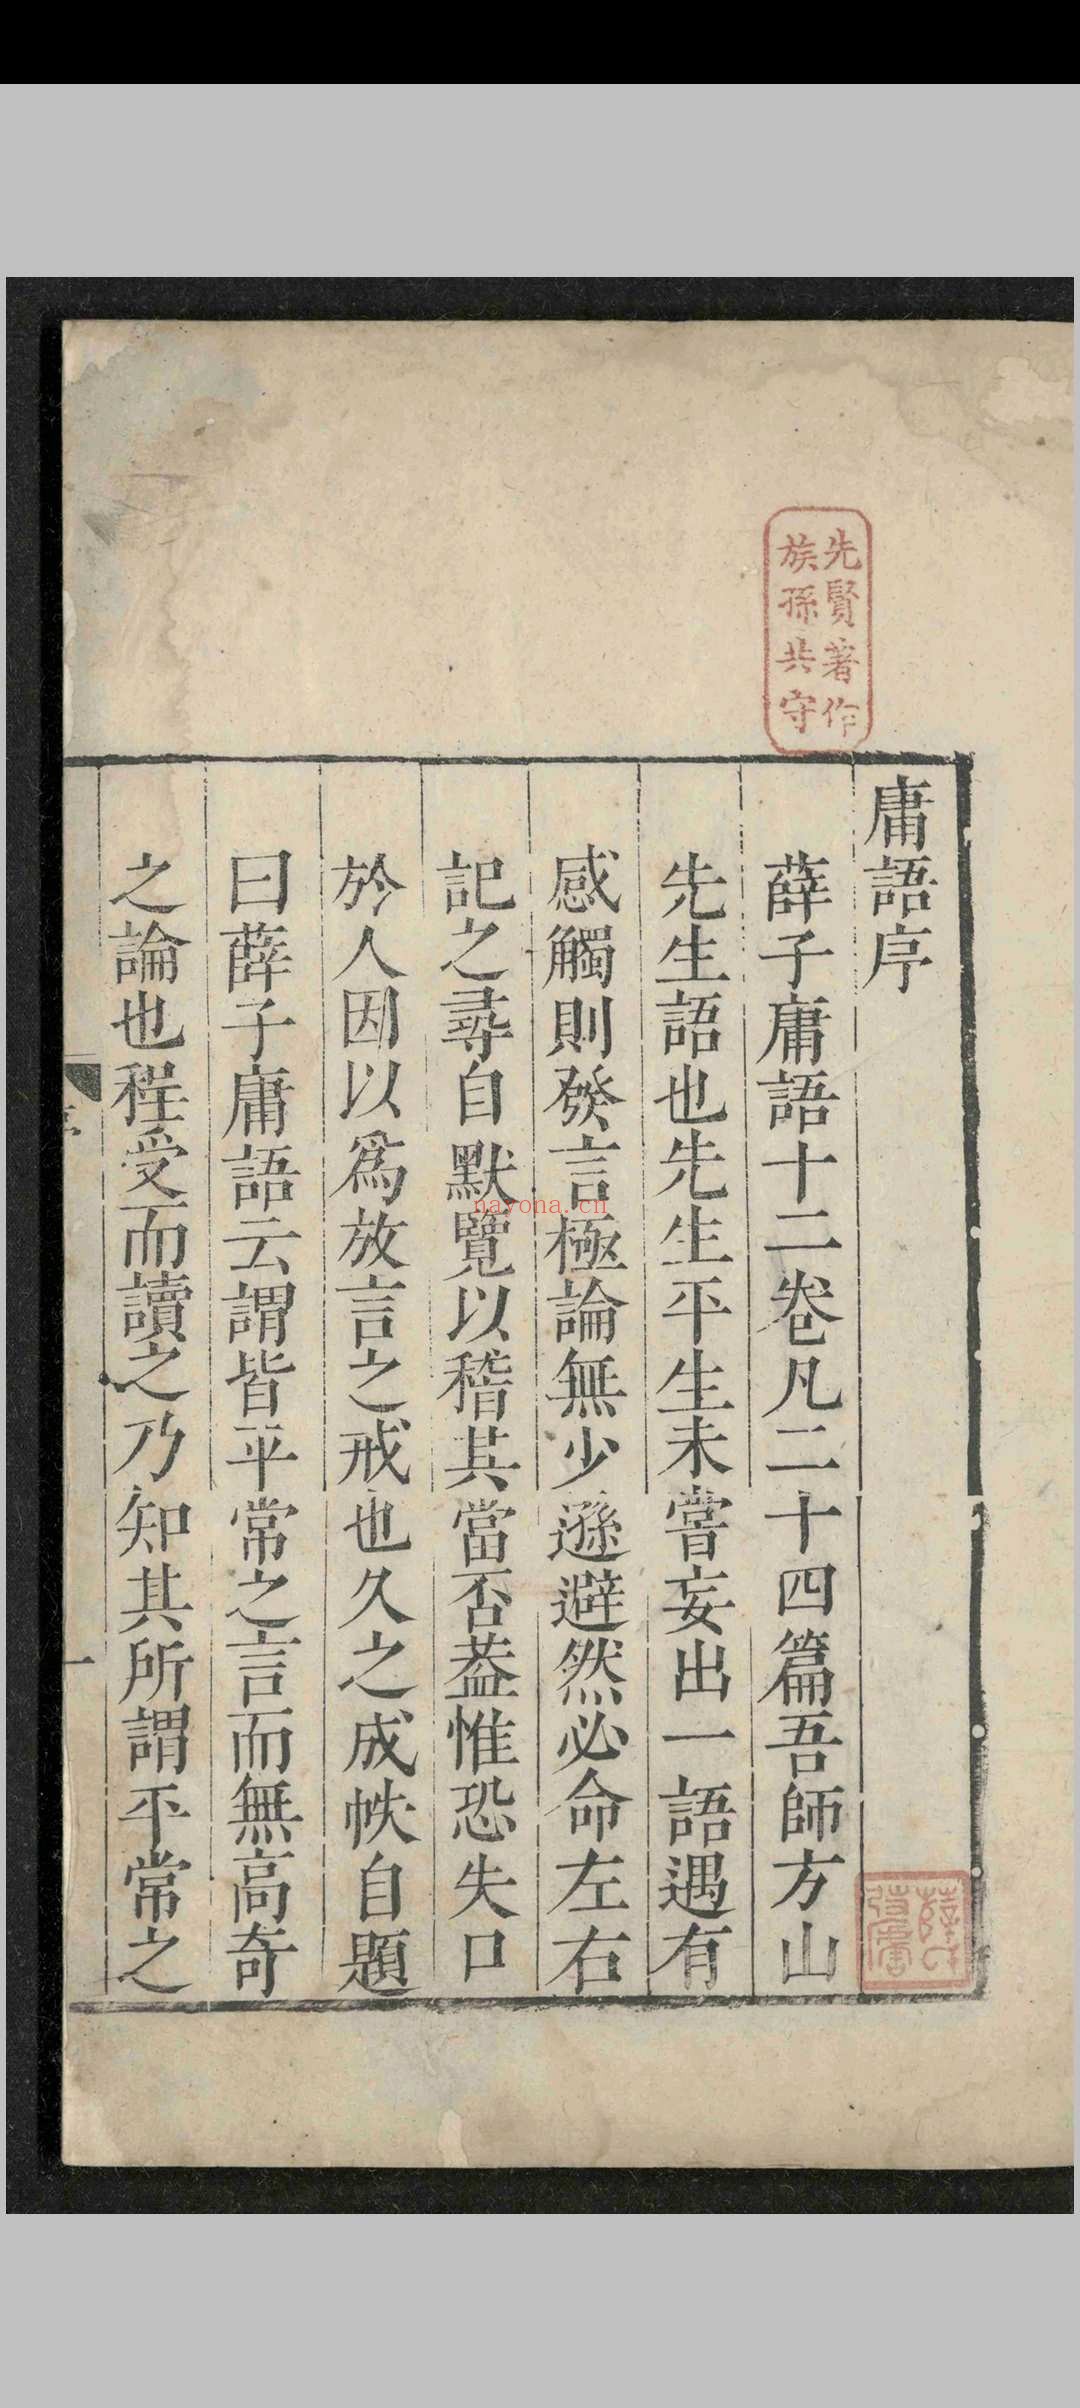 庸語序
薛子庸語十二卷凡二十四篇吾師方山
先生語也先生平生未嘗妄出一語遇有
感觸則發言極論無少遜避然必命左右
記之尋自默覽以稽其當否葢惟恐失口
於人因以爲放言之戒也久之成帙自題
曰薛子庸語云謂皆平常之言而無高奇
之論也程受而讀之乃知其所謂平常之
先賢著作
族孫共守
nayona.cn
一